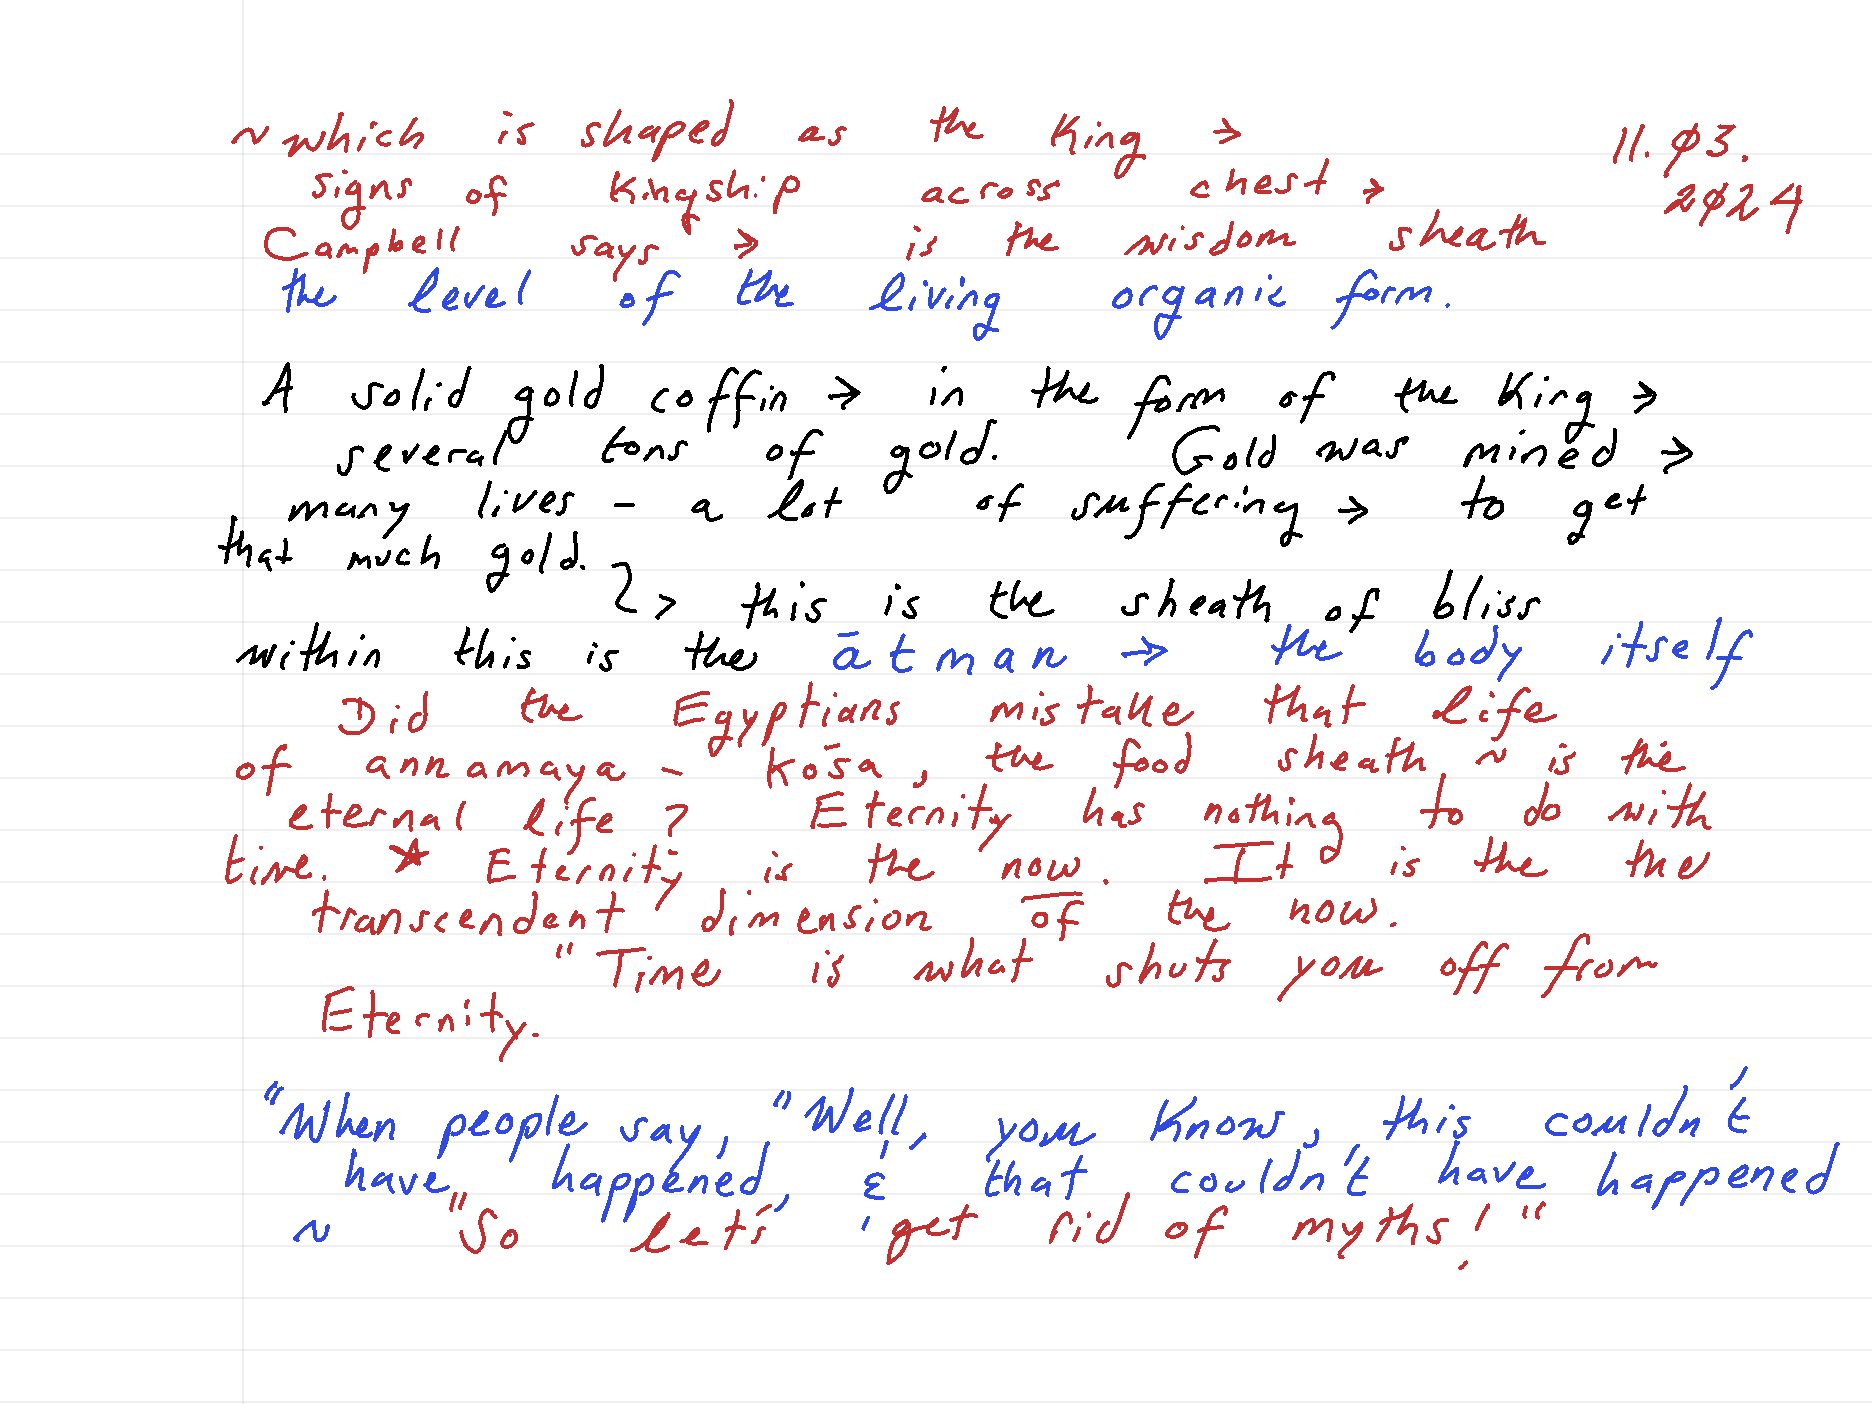 ~ which is shaped as the King → 11. Ø3.
signs of Kingship across chest → 2Ø24
Campbell says → is the wisdom sheath
the level of the living organic form.
A solid gold coffin → in the form of the King →
several tons of gold. Gold was mined →
many lives - a lot of suffering → to get
that much gold.
↳ this is the sheath of bliss
within this is the ātman → the body itself
Did the Egyptians mistake that life
of annamaya - kōsa, the food sheath ~ is the
eternal life? Eternity has nothing to do with
time. ★ Eternity is the now. It is the the
transcendent dimension of the now.
"Time is what shuts you off from
Eternity.
"When people say, "Well, you know, this couldn't
have happened, & that couldn't have happened
~ "So let's get rid of myths!"